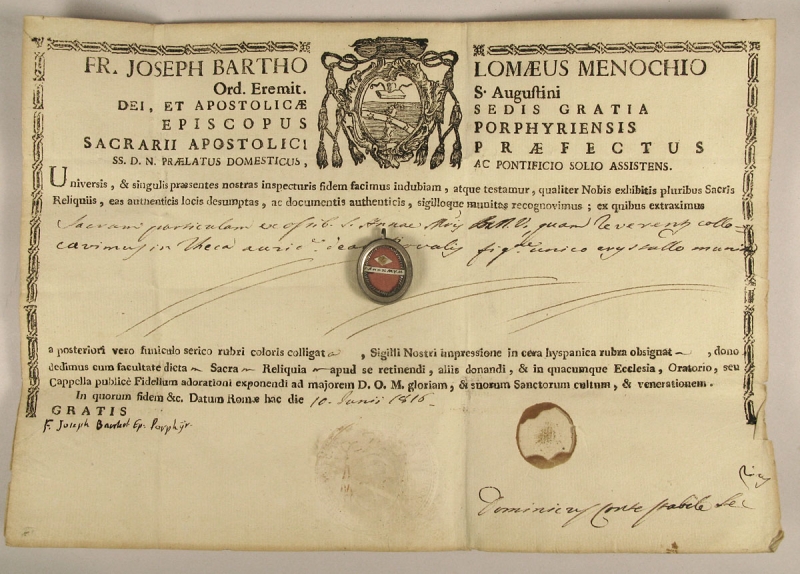 FR. JOSEPH BARTHO LOMÆUS MENOCHIO
Ord. Eremit. S. Augustini
DEI, ET APOSTOLICÆ SEDIS GRATIA
EPISCOPUS PORPHYRIENSIS
SACRARII APOSTOLICI PRÆFECTUS
SS. D. N. PRÆLATUS DOMESTICUS, AC PONTIFICIO SOLIO ASSISTENS.
Universis, & singulis præsentes nostras inspecturis fidem facimus indubiam, atque testamur, qualiter Nobis exhibitis pluribus Sacris
Reliquiis, eas authenticis locis desumptas, ac documentis authenticis, sigilloque munitas recognovimus; ex quibus extraximus
Sacram particulam ex ossib. S. Annae M͞ris B.M.V. quam reverenter collo-
cavimus in theca ovalis fig. unico crystallo munita
a posteriori vero funiculo serico rubri coloris colligat a, Sigilli Nostri impressione in cera hyspanica rubra obsignat a, dono
dedimus cum facultate dicta Sacra Reliquia apud se retinendi, aliis donandi, & in quacumque Ecclesia, Oratorio, seu
Cappella publicè Fidelium adorationi exponendi ad majorem D. O. M. gloriam, & suorum Sanctorum cultum, & venerationem.
In quorum fidem &c. Datum Romæ hac die 10. Junii 1816
GRATIS
F. Joseph Barthol. Ep. Porphyr.
Dominicus Contestabile Sec